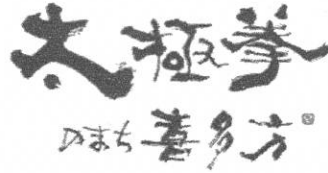 太極拳
のまち喜多方